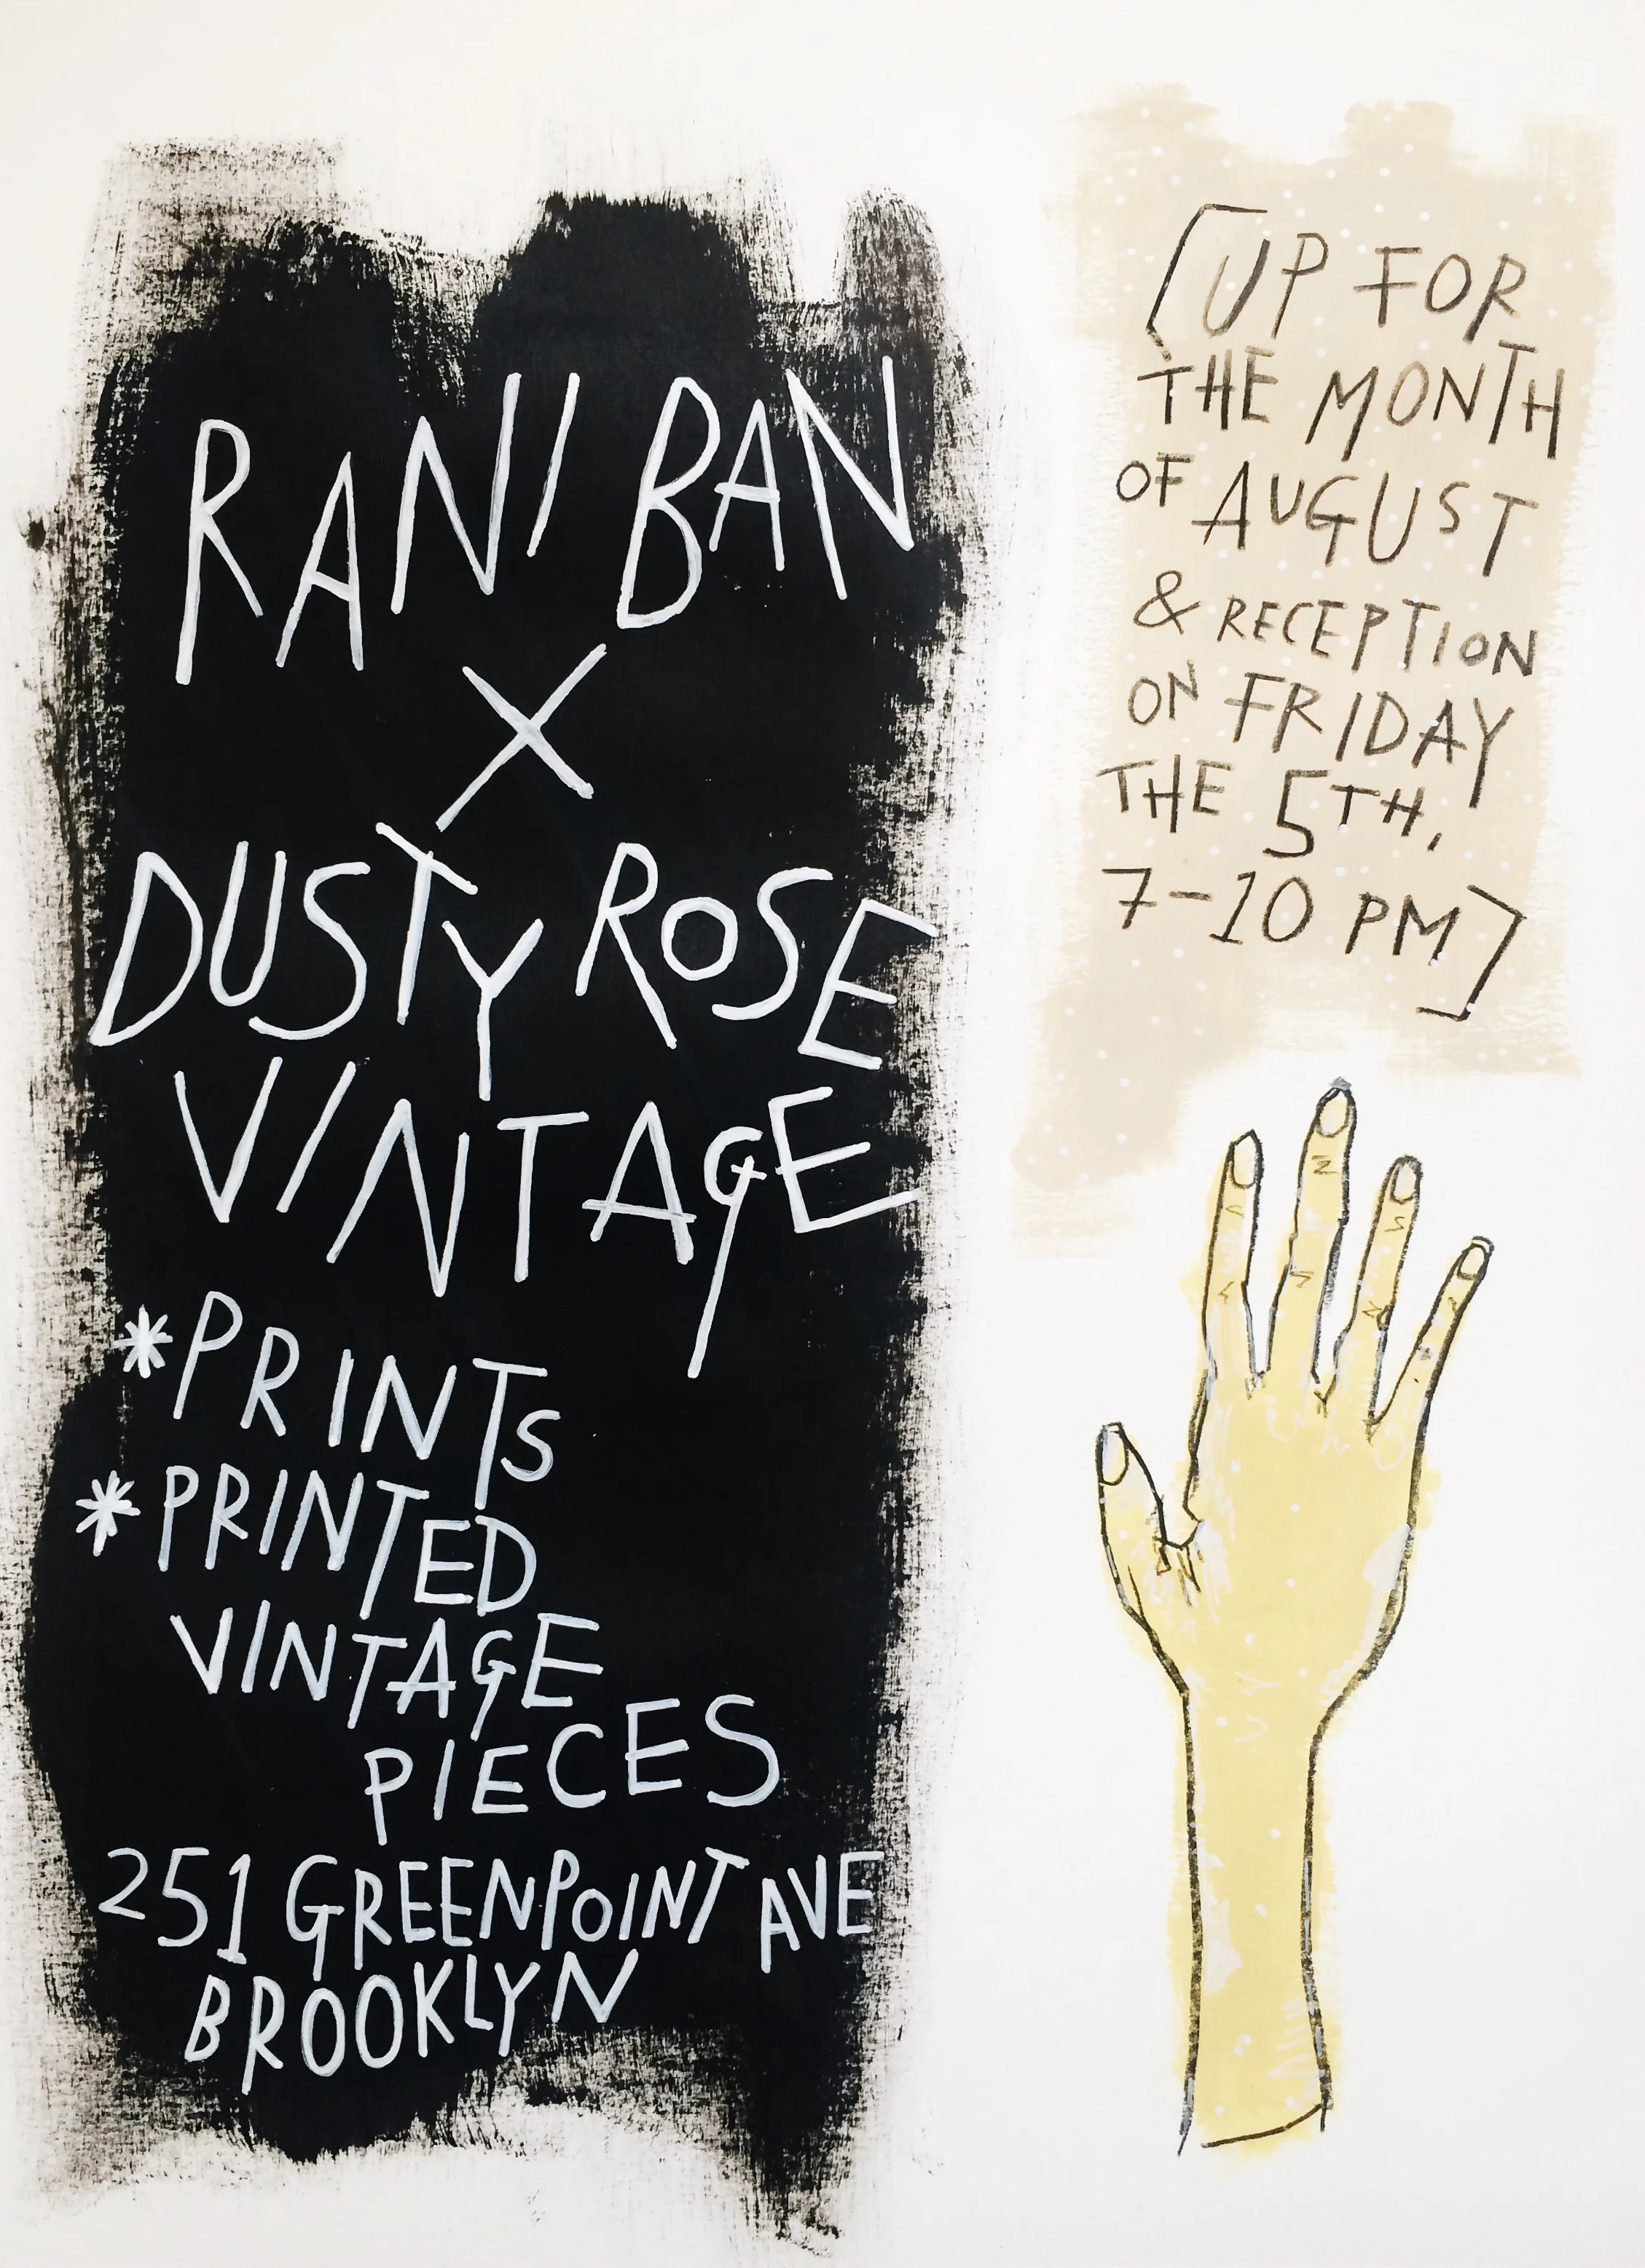 RANI BAN
X
DUSTY ROSE
VINTAGE
*PRINTS
*PRINTED
VINTAGE
PIECES
251 GREENPOINT AVE
BROOKLYN
[UP FOR
THE MONTH
OF AUGUST
& RECEPTION
ON FRIDAY
THE 5TH,
7-10 PM]